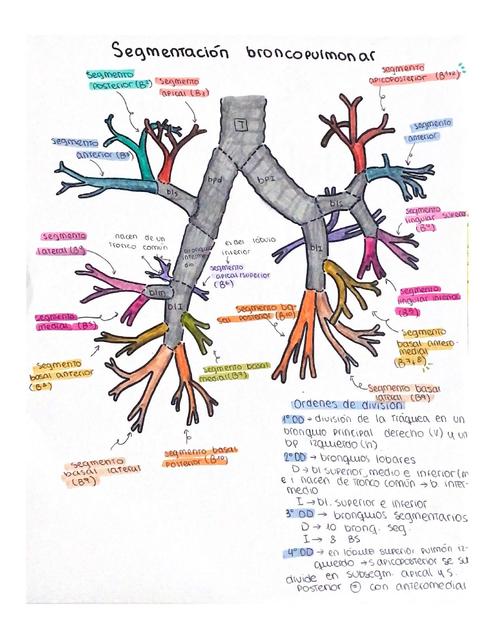 Segmentación broncopulmonar
segmento
posterior (B²)
segmento
apical (B1)
segmento
apicoposterior (B¹⁺²)
segmento
anterior (B³)
segmento
anterior
T
bpd
bpI
bls
bls
segmento
lingular
segmento
lateral (B⁴)
nacen de un
tronco común
bronquio
interme
dio
en el lóbulo
inferior
segmento
apical superior
(B⁶)
blI
segmento
medial (B⁵)
blm
blI
segmento ba-
sal posterior (B10)
segmento
lingular inferior
segmento
basal antero-
medial
(B7+8)
segmento
basal anterior
(B⁸)
segmento basal
medial (B⁷)
segmento basal
lateral (B⁹)
segmento
basal lateral
(B⁹)
segmento basal
posterior (B10)
Ordenes de división
1º OD → división de la tráquea en un
bronquio principal derecho (V) y un
bp izquierdo (H)
2º OD → bronquios lobares
D → bl superior, medio e inferior (m
e i nacen de tronco común → b. inter-
medio
I → bl. superior e inferior
3º OD → bronquios segmentarios
D → 10 bronq. seg.
I → 8 BS
4º OD → en lóbulo superior pulmón iz-
quierdo → s apicoposterior se su
divide en subsegm. apical y s.
posterior = con anteromedial